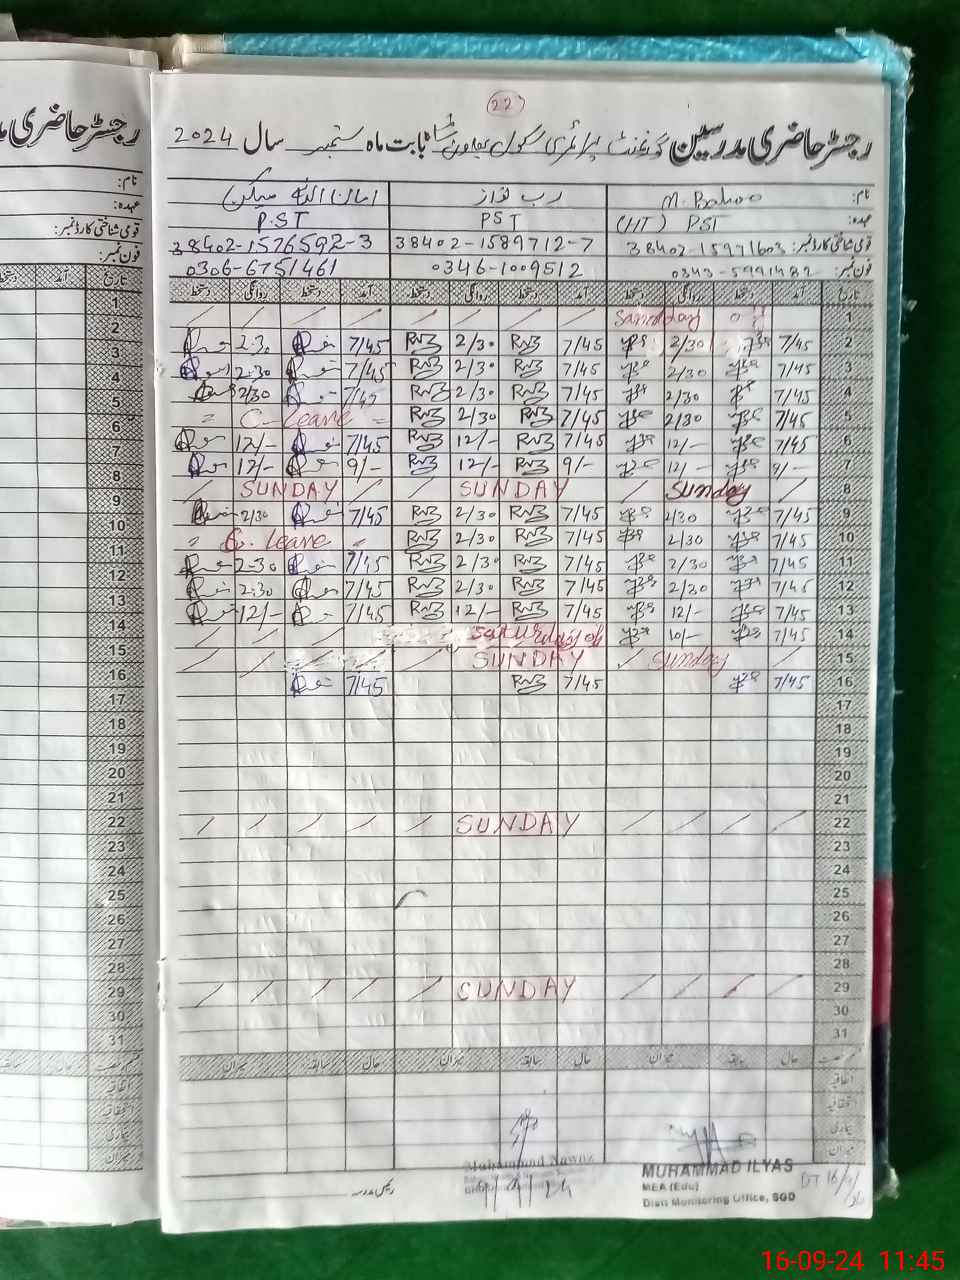 227
رجسٹر حاضری مدرسین گورنمنٹ پرائمری سکول بابت ماہ ستمبر سال 2024
نام: M. Bahoo رب نواز امان اللہ میکن
عہدہ: (HT) PST PST P.ST
قومی شناختی کارڈ نمبر: 38402-15971603 38402-1589712-7 38402-1576592-3
فون نمبر: 0343-5991482 0346-1009512 0306-6751461
تاریخ آمد دستخط روانگی دستخط آمد دستخط روانگی دستخط آمد دستخط روانگی دستخط
1 Sandday
2 7/45 2/30 7/45 RNZ 2/30 RNZ 7/45 2:30
3 7/45 2/30 7/45 RNZ 2/30 RNZ 7/45 2:30
4 7/45 2/30 7/45 RNZ 2/30 RNZ 7/45 2/30
5 7/45 2/30 7/45 RNZ 2/30 RNZ C-Leave
6 7/45 12/- 7/45 RNZ 12/- RNZ 7/45 12/-
7 9/- 12/- 9/- RNZ 12/- RNZ 9/- 12/-
8 Sunday SUNDAY SUNDAY
9 7/45 2/30 7/45 RNZ 2/30 RNZ 7/45 2/30
10 7/45 2/30 7/45 RNZ 2/30 RNZ C. Leave
11 7/45 2/30 7/45 RNZ 2/30 RNZ 7/45 2-30
12 7/45 2/30 7/45 RNZ 2/30 RNZ 7/45 2:30
13 7/45 12/- 7/45 RNZ 12/- RNZ 7/45 12/-
14 7/45 10/- Saturday of
15 Sunday SUNDAY
16 7/45 7/45 RNZ 7/45
17
18
19
20
21
22 SUNDAY
23
24
25
26
27
28
29 SUNDAY
30
31
حال سابقہ میزان حال سابقہ میزان حال سابقہ میزان
اتفاقیہ
بیماری
میزان
Muhammad Nawaz
MUHAMMAD ILYAS
MEA (Edu)
Distt Monitoring Office, SGD
DT 16/9/
رئیس مدرسہ
رجسٹر حاضری مد
نام:
عہدہ:
قومی شناختی کارڈ نمبر:
فون نمبر:
تاریخ آمد دستخط
1
2
3
4
5
6
7
8
9
10
11
12
13
14
15
16
17
18
19
20
21
22
23
24
25
26
27
28
29
30
31
16-09-24 11:45